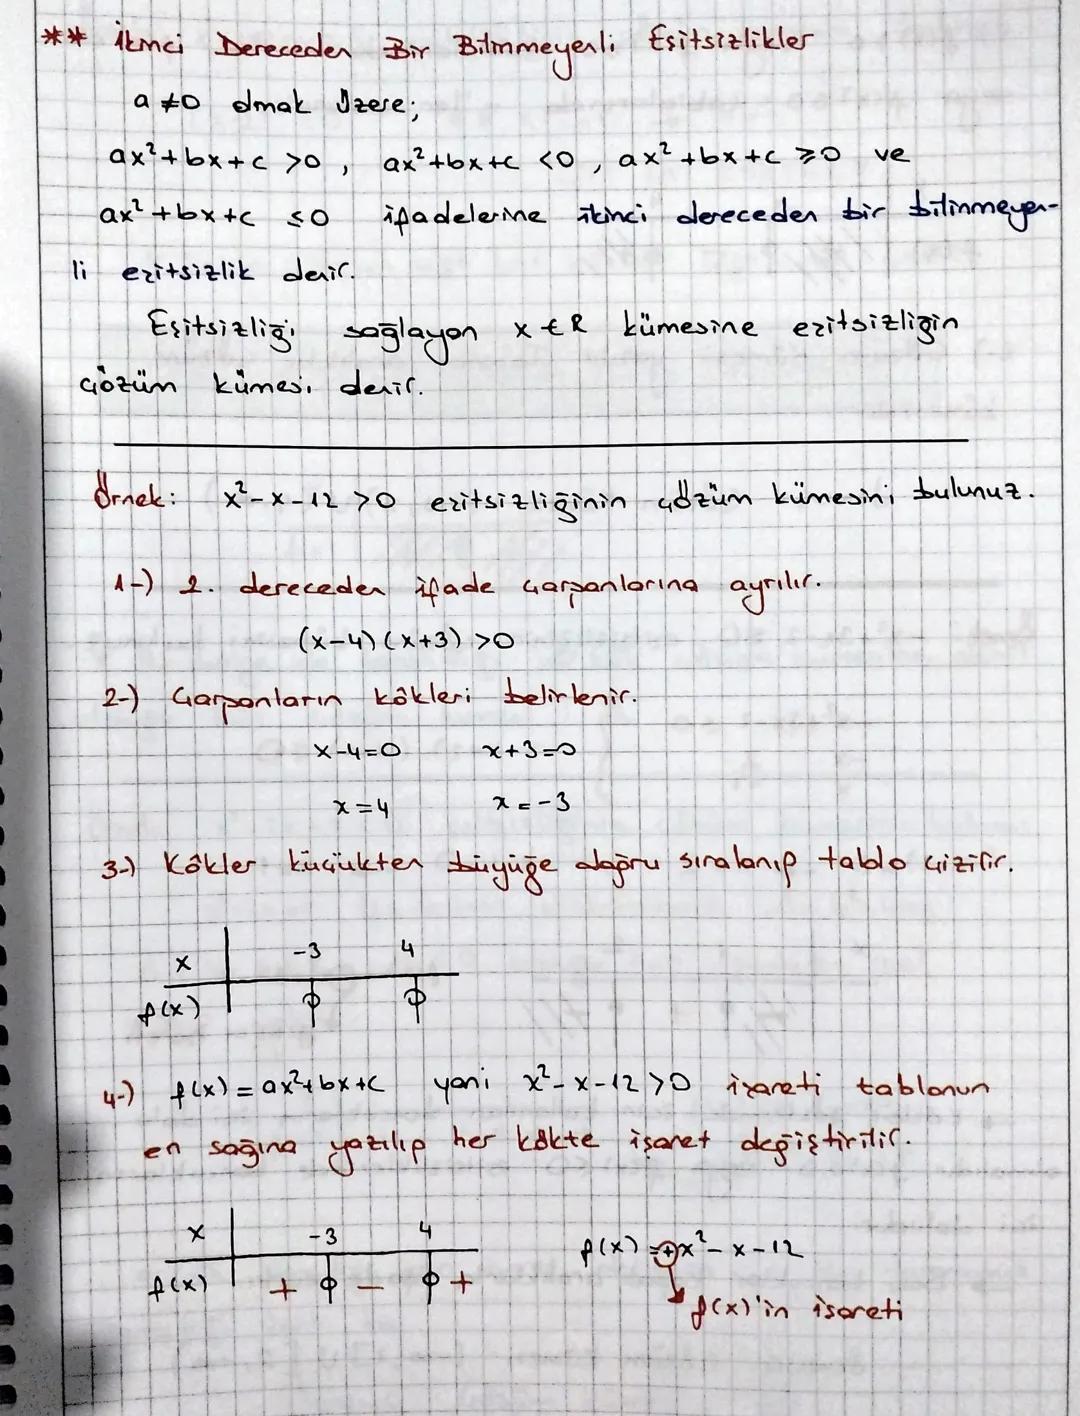 ** İkinci Dereceden Bir Bilinmeyenli Eşitsizlikler
a ≠ 0 olmak üzere;
ax²+bx+c >0 , ax²+bx+c <0 , ax²+bx+c ≥0 ve
ax²+bx+c ≤0 ifadelerine ikinci dereceden bir bilinmeyen-
li eşitsizlik denir.
Eşitsizliği sağlayan x ∈ R kümesine eşitsizliğin
çözüm kümesi denir.
Örnek: x²-x-12 >0 eşitsizliğinin çözüm kümesini bulunuz.
1-) 2. dereceden ifade çarpanlarına ayrılır.
(x-4)(x+3) >0
2-) Çarpanların kökleri belirlenir.
x-4=0 x+3=0
x=4 x=-3
3-) Kökler küçükten büyüğe doğru sıralanıp tablo çizilir.
x -3 4
f(x)
4-) f(x)=ax²+bx+c yani x²-x-12>0 işareti tablonun
en sağına yazılıp her kökte işaret değiştirilir.
x -3 4
f(x) + - +
f(x)=+x²-x-12
f(x)'in işareti